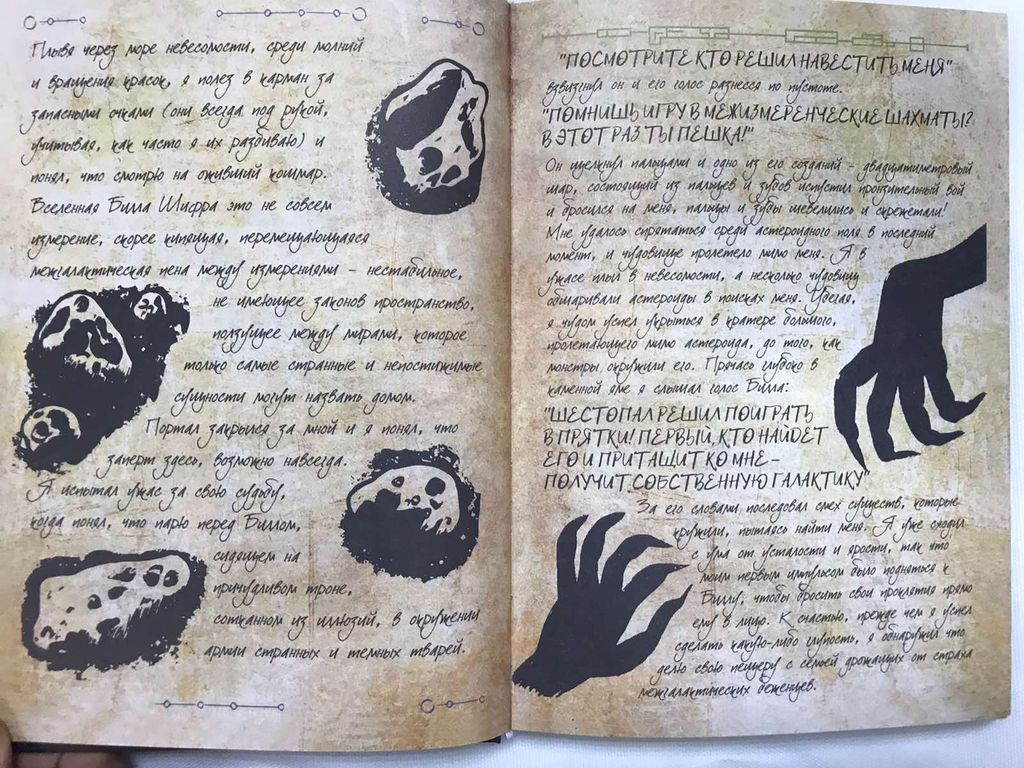 Плывя через море невесомости, среди молний
и вращения красок, я полез в карман за
запасными очками (они всегда под рукой,
учитывая, как часто я их разбиваю) и
понял, что смотрю на оживший кошмар.
Вселенная Билла Шифра это не совсем
измерение, скорее кипящая, перемещающаяся
межгалактическая пена между измерениями – нестабильное,
не имеющее законов пространство,
ползущее между мирами, которое
только самые странные и непостижимые
сущности могут назвать домом.
Портал закрылся за мной и я понял, что
заперт здесь, возможно навсегда.
Я испытал ужас за свою судьбу,
когда понял, что парю перед Биллом,
сидящем на
причудливом троне,
сотканном из иллюзий, в окружении
армии странных и темных тварей.
"ПОСМОТРИТЕ КТО РЕШИЛ НАВЕСТИТЬ МЕНЯ"
взвизгнул он и его голос разнесся по пустоте.
"ПОМНИШЬ ИГРУ В МЕЖИЗМЕРЕНЧЕСКИЕ ШАХМАТЫ?
В ЭТОТ РАЗ ТЫ ПЕШКА!"
Он щелкнул пальцами и одно из его созданий – двадцатиметровый
шар, состоящий из пальцев и зубов испустил пронзительный вой
и бросился на меня, пальцы и зубы шевелились и скрежетали!
Мне удалось спрятаться среди астероидного поля в последний
момент, и чудовище пролетело мимо меня. Я в
ужасе плыл в невесомости, а несколько чудовищ
обшаривали астероиды в поисках меня. Убегая,
я чудом успел укрыться в кратере большого,
пролетающего мимо астероида, до того, как
монстры окружили его. Прячась глубоко в
каменной яме я слышал голос Билла:
"ШЕСТОПАЛ РЕШИЛ ПОИГРАТЬ
В ПРЯТКИ! ПЕРВЫЙ, КТО НАЙДЕТ
ЕГО И ПРИТАЩИТ КО МНЕ –
ПОЛУЧИТ СОБСТВЕННУЮ ГАЛАКТИКУ"
За его словами последовал смех существ, которые
кружили, пытаясь найти меня. Я уже сходил
с ума от усталости и ярости, так что
моим первым импульсом было подняться к
Биллу, чтобы бросить свои проклятия прямо
ему в лицо. К счастью, прежде чем я успел
сделать какую-либо глупость, я обнаружил что
делю свою пещеру с семьей дрожащих от страха
межгалактических беженцев.